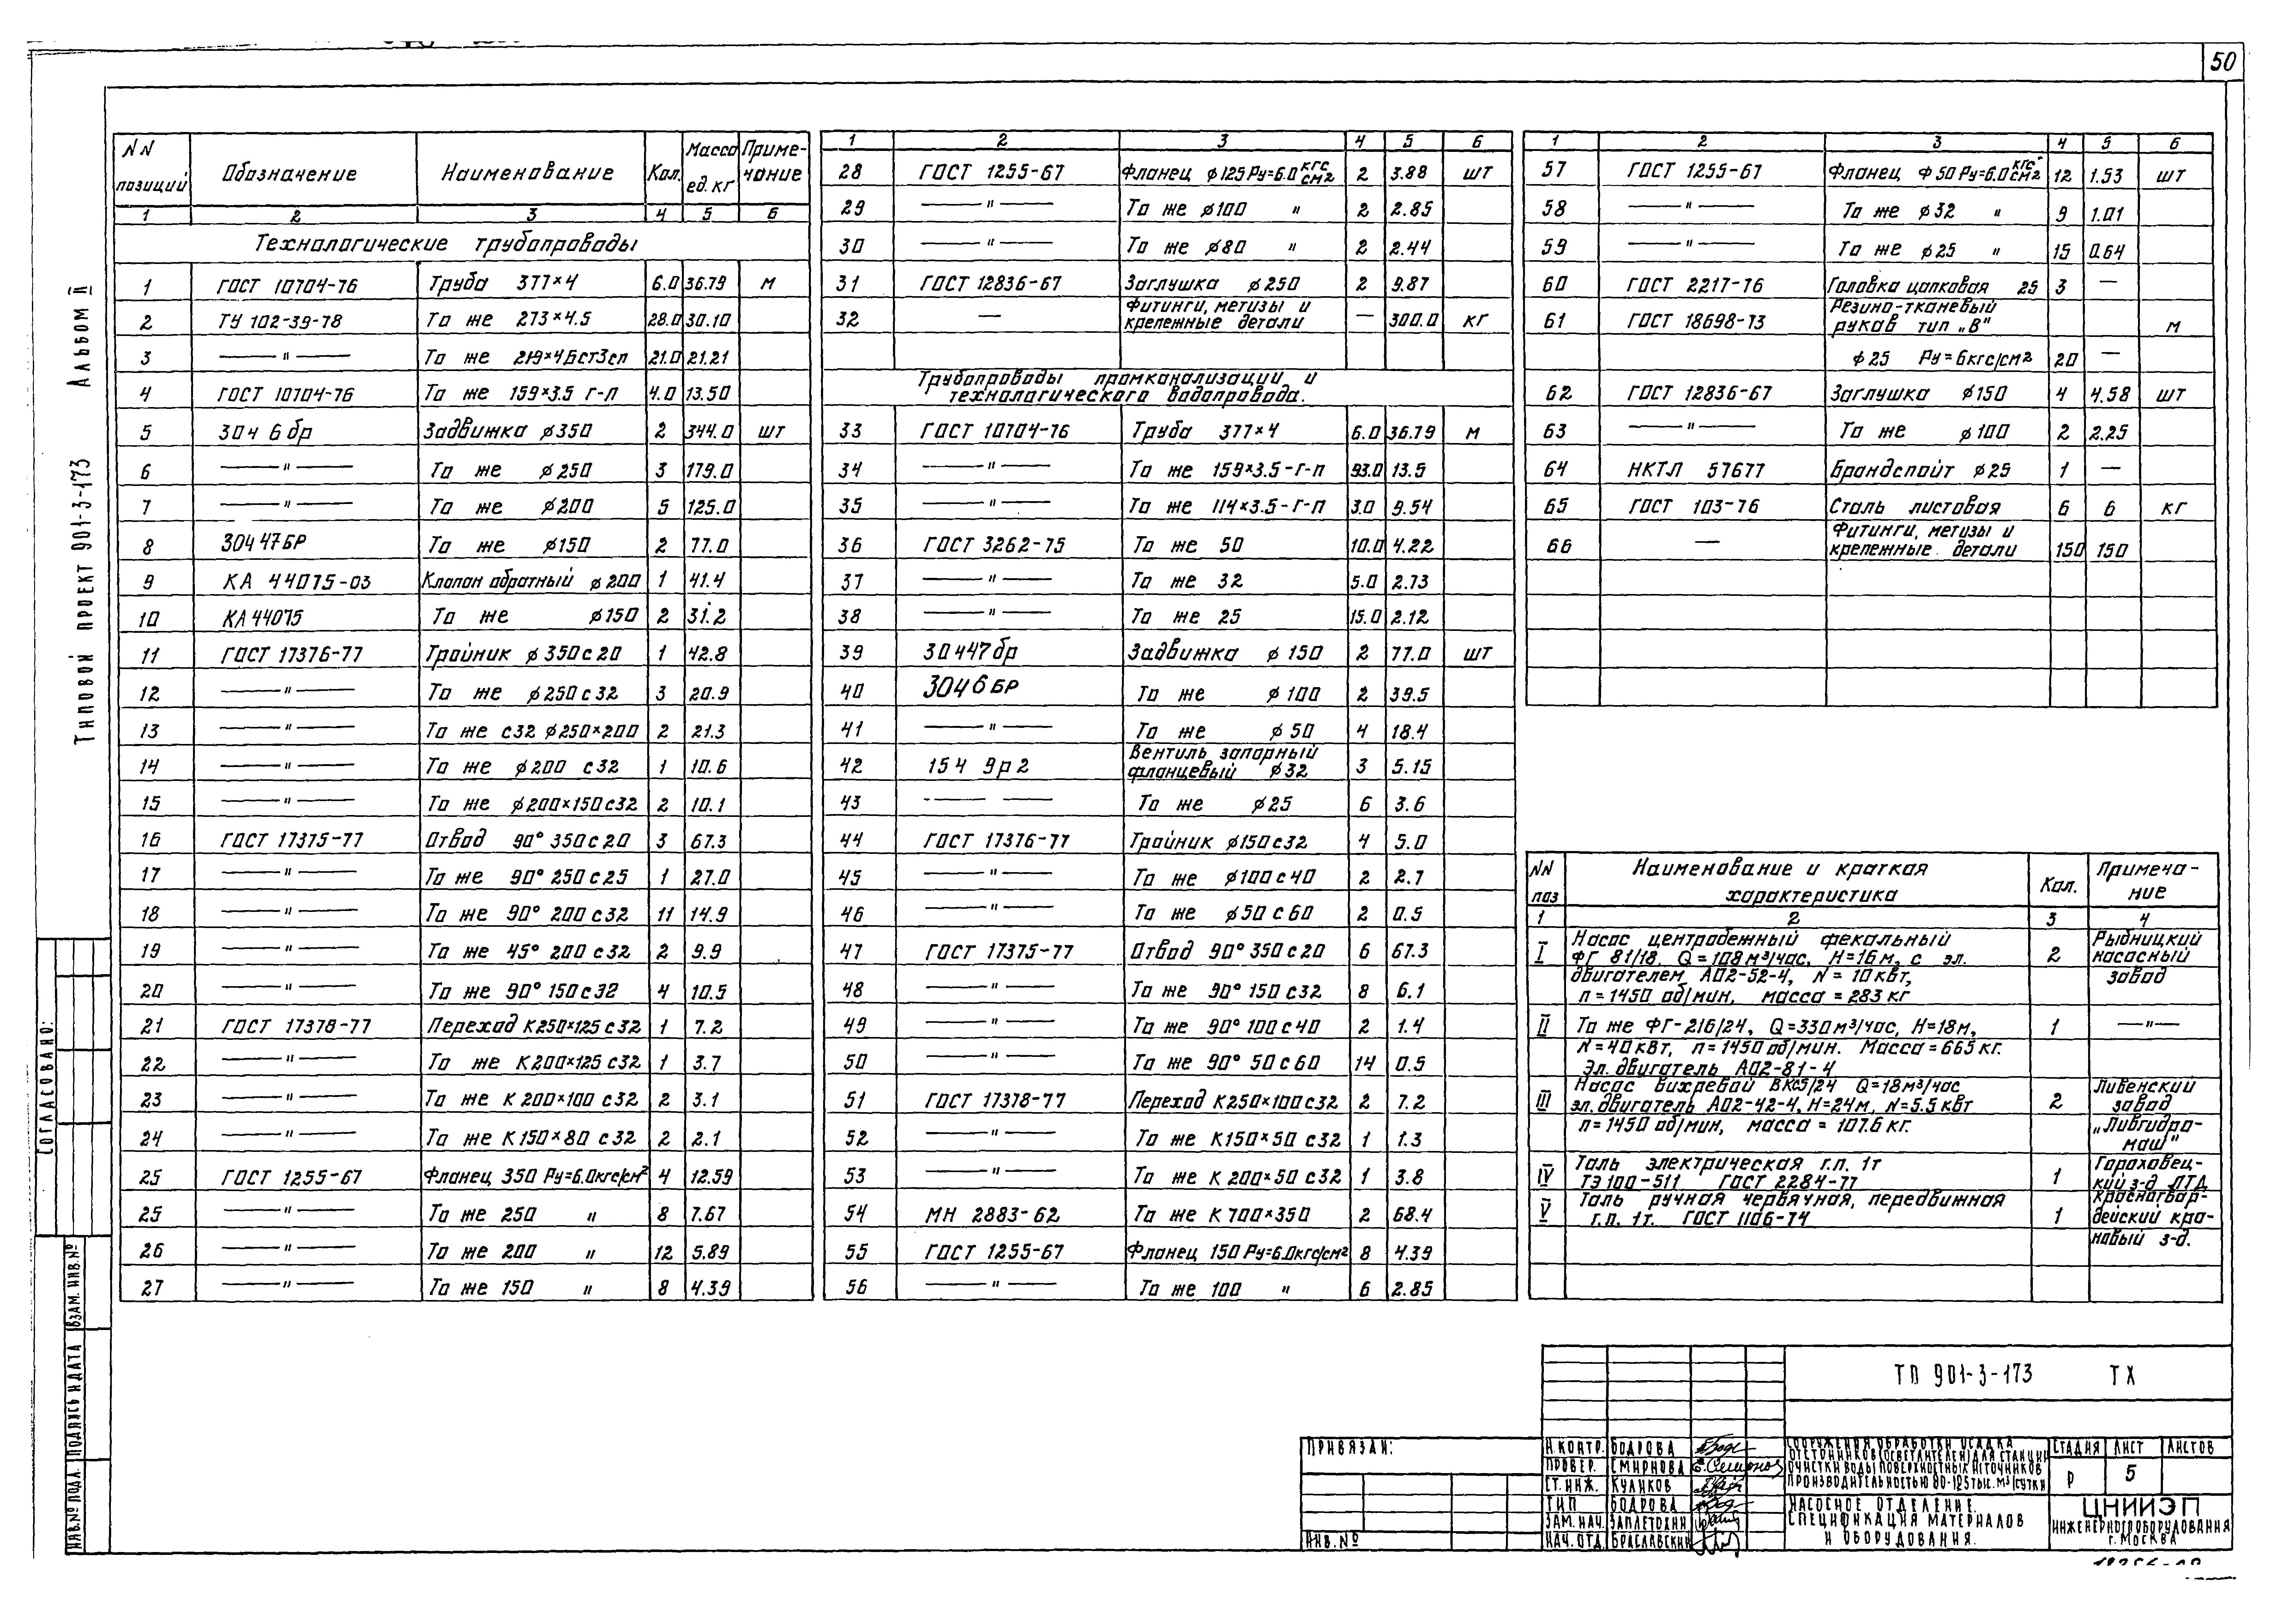 50
Альбом II
Типовой проект 901-3-173
Согласовано:
Взам. инв.№
Подпись и дата
Инв.№ подл.
NN позиций | Обозначение | Наименование | Кол. | Масса ед. кг | Приме-чание
1 | 2 | 3 | 4 | 5 | 6
Технологические трубопроводы
1 | ГОСТ 10704-76 | Труба 377×4 | 6.0 | 36.79 | м
2 | ТУ 102-39-78 | То же 273×4.5 | 28.0 | 30.10
3 | —"— | То же 219×4 Бст3сп | 21.0 | 21.21
4 | ГОСТ 10704-76 | То же 159×3.5 г-п | 4.0 | 13.50
5 | 30ч 6 бр | Задвижка ø350 | 2 | 344.0 | шт
6 | —"— | То же ø250 | 3 | 179.0
7 | —"— | То же ø200 | 5 | 125.0
8 | 30ч 47БР | То же ø150 | 2 | 77.0
9 | КА 44075-03 | Клапан обратный ø200 | 1 | 41.4
10 | КА 44075 | То же ø150 | 2 | 31.2
11 | ГОСТ 17376-77 | Тройник ø350 с 20 | 1 | 42.8
12 | —"— | То же ø250 с 32 | 3 | 20.9
13 | —"— | То же с32 ø250×200 | 2 | 21.3
14 | —"— | То же ø200 с32 | 1 | 10.6
15 | —"— | То же ø200×150 с32 | 2 | 10.1
16 | ГОСТ 17375-77 | Отвод 90° 350 с 20 | 3 | 67.3
17 | —"— | То же 90° 250 с 25 | 1 | 27.0
18 | —"— | То же 90° 200 с 32 | 11 | 14.9
19 | —"— | То же 45° 200 с 32 | 2 | 9.9
20 | —"— | То же 90° 150 с 32 | 4 | 10.5
21 | ГОСТ 17378-77 | Переход К250×125 с 32 | 1 | 7.2
22 | —"— | То же К200×125 с32 | 1 | 3.7
23 | —"— | То же К 200×100 с32 | 2 | 3.1
24 | —"— | То же К150×80 с32 | 2 | 2.1
25 | ГОСТ 1255-67 | Фланец 350 Ру=6.0кгс/см² | 4 | 12.59
25 | —"— | То же 250 " | 8 | 7.67
26 | —"— | То же 200 " | 12 | 5.89
27 | —"— | То же 150 " | 8 | 4.39
1 | 2 | 3 | 4 | 5 | 6
28 | ГОСТ 1255-67 | Фланец ø125 Ру=6.0 кгс/см² | 2 | 3.88 | шт
29 | —"— | То же ø100 " | 2 | 2.85
30 | —"— | То же ø80 " | 2 | 2.44
31 | ГОСТ 12836-67 | Заглушка ø250 | 2 | 9.87
32 | — | Фитинги, метизы и крепежные детали | — | 300.0 | кг
Трубопроводы промканализации и
технологического водопровода.
33 | ГОСТ 10704-76 | Труба 377×4 | 6.0 | 36.79 | м
34 | —"— | То же 159×3.5-г-п | 93.0 | 13.5
35 | —"— | То же 114×3.5-г-п | 3.0 | 9.54
36 | ГОСТ 3262-75 | То же 50 | 10.0 | 4.22
37 | —"— | То же 32 | 5.0 | 2.73
38 | —"— | То же 25 | 15.0 | 2.12
39 | 30ч47бр | Задвижка ø150 | 2 | 77.0 | шт
40 | 30ч6БР | То же ø100 | 2 | 39.5
41 | —"— | То же ø50 | 4 | 18.4
42 | 15ч 9р2 | Вентиль запорный фланцевый ø32 | 3 | 5.15
43 | — — | То же ø25 | 6 | 3.6
44 | ГОСТ 17376-77 | Тройник ø150 с32 | 4 | 5.0
45 | —"— | То же ø100 с 40 | 2 | 2.7
46 | —"— | То же ø50 с 60 | 2 | 0.5
47 | ГОСТ 17375-77 | Отвод 90° 350 с 20 | 6 | 67.3
48 | —"— | То же 90° 150 с32 | 8 | 6.1
49 | —"— | То же 90° 100 с 40 | 2 | 1.4
50 | —"— | То же 90° 50 с 60 | 14 | 0.5
51 | ГОСТ 17378-77 | Переход К250×100 с32 | 2 | 7.2
52 | —"— | То же К150×50 с32 | 1 | 1.3
53 | —"— | То же К 200×50 с32 | 1 | 3.8
54 | МН 2883-62 | То же К 700×350 | 2 | 68.4
55 | ГОСТ 1255-67 | Фланец 150 Ру=6.0кгс/см² | 8 | 4.39
56 | —"— | То же 100 " | 6 | 2.85
1 | 2 | 3 | 4 | 5 | 6
57 | ГОСТ 1255-67 | Фланец ø50 Ру=6.0 кгс/см² | 12 | 1.53 | шт
58 | —"— | То же ø32 " | 9 | 1.01
59 | —"— | То же ø25 " | 15 | 0.64
60 | ГОСТ 2217-76 | Головка цапковая 25 | 3 | —
61 | ГОСТ 18698-73 | Резино-тканевый рукав тип „В" | м
ø25 Ру=6кгс/см² | 20 | —
62 | ГОСТ 12836-67 | Заглушка ø150 | 4 | 4.58 | шт
63 | —"— | То же ø100 | 2 | 2.25
64 | НКТЛ 57677 | Брандспойт ø25 | 1 | —
65 | ГОСТ 103-76 | Сталь листовая | 6 | 6 | кг
66 | — | Фитинги, метизы и крепежные детали | 150 | 150
NN поз | Наименование и краткая характеристика | Кол. | Примеча-ние
1 | 2 | 3 | 4
I | Насос центробежный фекальный | 2 | Рыбницкий
ФГ 81/18, Q=108м³/час, Н=16м, с эл. | насосный
двигателем АО2-52-4, N=10квт, | завод
n=1450 об/мин, масса=283 кг
II | То же ФГ-216/24, Q=330м³/час, Н=18м, | 1 | —"—
N=40квт, n=1450 об/мин. Масса=665 кг.
Эл. двигатель АО2-81-4
III | Насос вихревой ВКС5/24 Q=18м³/час | 2 | Ливенский
эл. двигатель АО2-42-4, Н=24м, N=5.5 квт | завод
n=1450 об/мин, масса=107.6 кг. | „Ливгидро-
маш"
IV | Таль электрическая г.п. 1т | 1 | Гороховец-
ТЭ100-511 ГОСТ 2284-77 | кий з-д ПТД
V | Таль ручная червячная, передвижная | 1 | Красногвар-
г.п. 1т. ГОСТ 1106-74 | дейский кра-
новый з-д.
ТП 901-3-173 ТХ
Привязан:
Инв.№
Н.контр. Бодрова
Провер. Смирнова
Ст.инж. Куликов
ГИП Бодрова
Зам.нач. Заплетохин
Нач.отд. Браславский
Сооружения обработки осадка
отстойников (осветлителей) для станции
очистки воды поверхностных источников
производительностью 80-125тыс.м³/сутки
Стадия | Лист | Листов
Р | 5
Насосное отделение.
Спецификация материалов
и оборудования.
ЦНИИЭП
инженерного оборудования
г. Москва